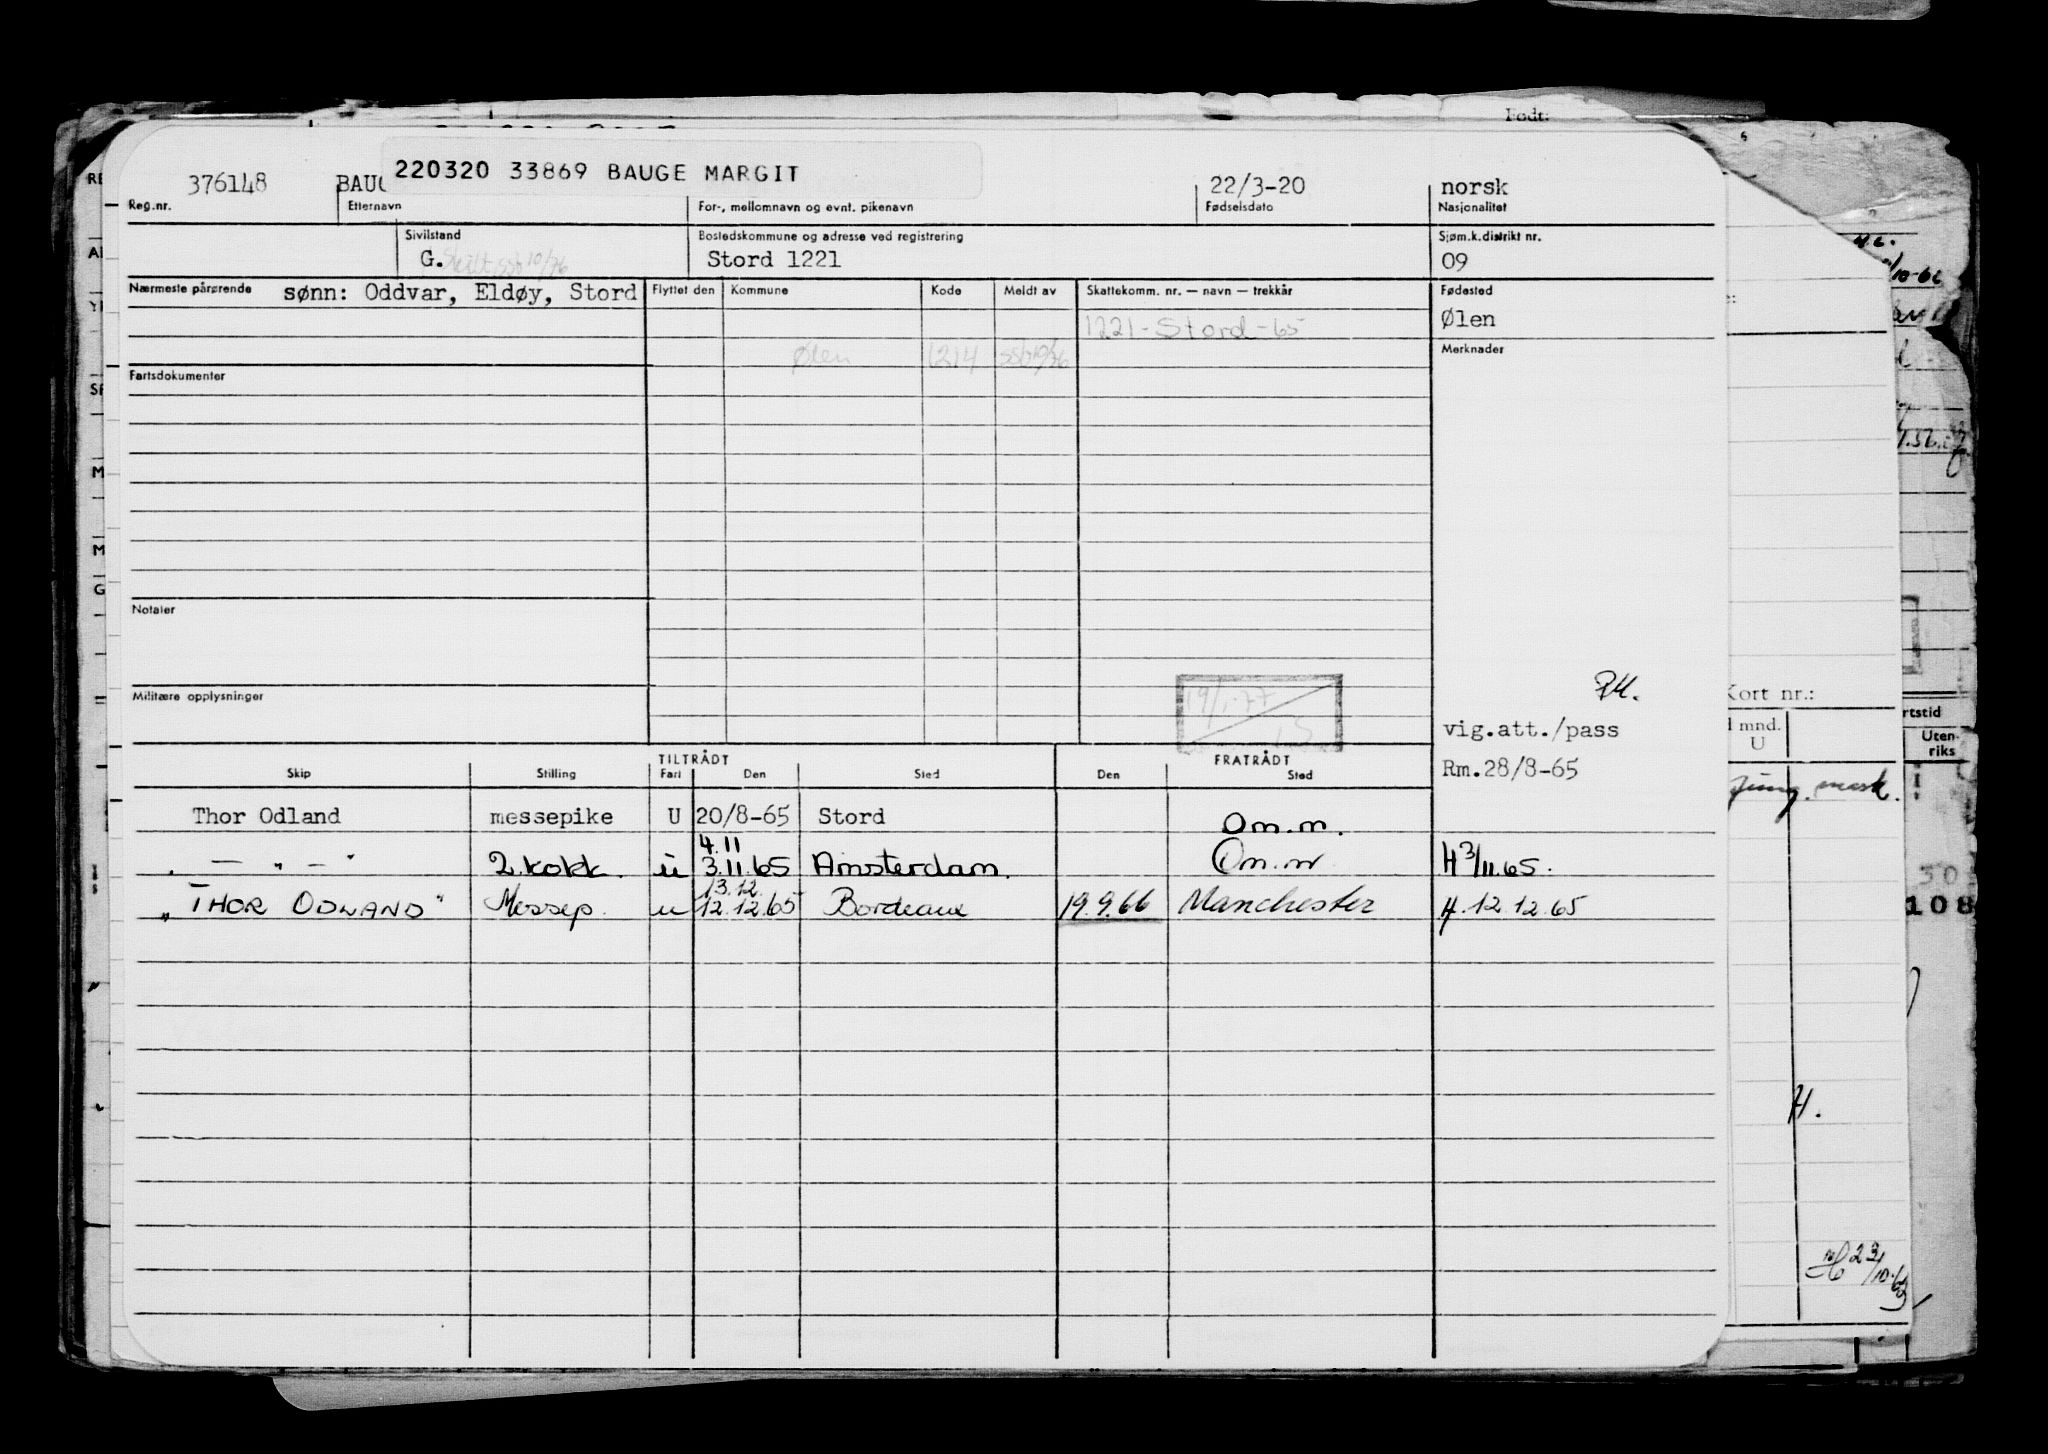 Født:
220320 33869 BAUGE MARGIT
376148 BAUG 22/3-20 norsk
Reg.nr. Etternavn For-, mellomnavn og evnt. pikenavn Fødselsdato Nasjonalitet
Sivilstand Bostedskommune og adresse ved registrering Sjøm.k.distrikt nr.
G. Skilt, ssb 10/76 Stord 1221 09
Nærmeste pårørende sønn: Oddvar, Eldøy, Stord Flyttet den Kommune Kode Meldt av Skattekomm. nr. — navn — trekkår Fødested
1221-Stord-65 Ølen
Ølen 1214 ssb 10/76 Merknader
Fartsdokumenter
Notater
Militære opplysninger
19/1-77
vig.att./pass
Rm.28/8-65
TILTRÅDT FRATRÅDT
Skip Stilling Fart Den Sted Den Sted
Thor Odland messepike U 20/8-65 Stord Om.m.
4.11
— " — " 2.kokk. u 3.11.65 Amsterdam. Om.m H 3/11.65.
13.12.
"THOR ODLAND" Messep. u 12.12.65 Bordeaux 19.9.66 Manchester H.12.12.65
Kort nr.:
mnd.
U
rtstid
Uten-
riks
Jung. mask.
30
108
H.
H 23/10-63